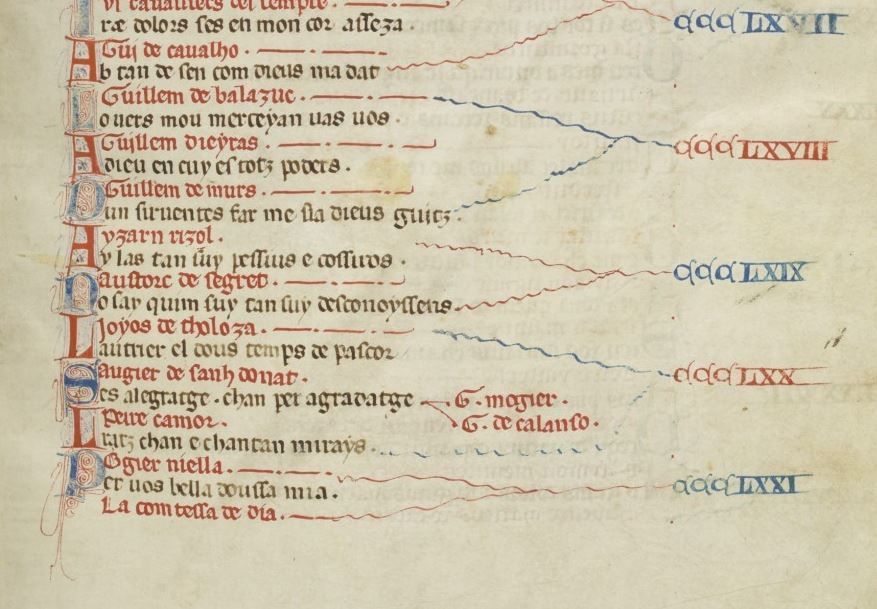 cavaliers del temple
Iræ dolors ses en mon cor asseza CCCLXVII
Gui de cavalho
Ab tan de sen com dieus ma dat
Guillem de balazuc
Iovers mou merceyan vas vos
Guillem dieyras CCCLXVIII
A dieu en cuy es totz poders
Guillem de murs
Dun sirventes far me sia dieus guitz
ayzarn rizol
Ay las tan suy pessius e cossiros
austorc de segret CCCLXIX
No say quim suy tan suy desconoyssens
Joyos de tholoza
Lautrier el dous temps de pascor
augier de sanh donat CCCLXX
Ses alegratge chan per agradatge G. mogier
Peire camor G. de calanso
Iratz chan e chantan mirays
Rogier niella
Per vos bella doussa mia CCCLXXI
La comtessa de dia